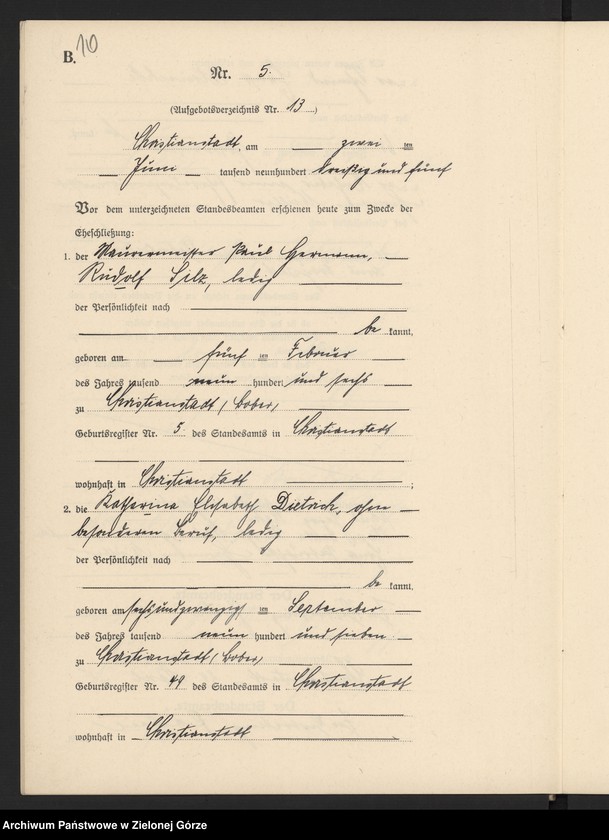 B. 10
Nr. 5.
(Aufgebotsverzeichnis Nr. 13)
Christianstadt, am zwei ten
Juni tausend neunhundert dreißig und fünf
Vor dem unterzeichneten Standesbeamten erschienen heute zum Zwecke der
Eheschließung:
1. der Maurermeister Paul Hermann,
Rudolf Silz, ledig
der Persönlichkeit nach
be kannt,
geboren am fünf ten Februar
des Jahres tausend neun hundert und sechs
zu Christianstadt (Bober)
Geburtsregister Nr. 5 des Standesamts in Christianstadt
wohnhaft in Christianstadt ;
2. die Katharina Elisabeth Dietrich, ohne
besonderen Beruf, ledig
der Persönlichkeit nach
be kannt,
geboren am sechsundzwanzigst en September
des Jahres tausend neun hundert und sieben
zu Christianstadt (Bober)
Geburtsregister Nr. 49 des Standesamts in Christianstadt
wohnhaft in Christianstadt
Archiwum Państwowe w Zielonej Górze